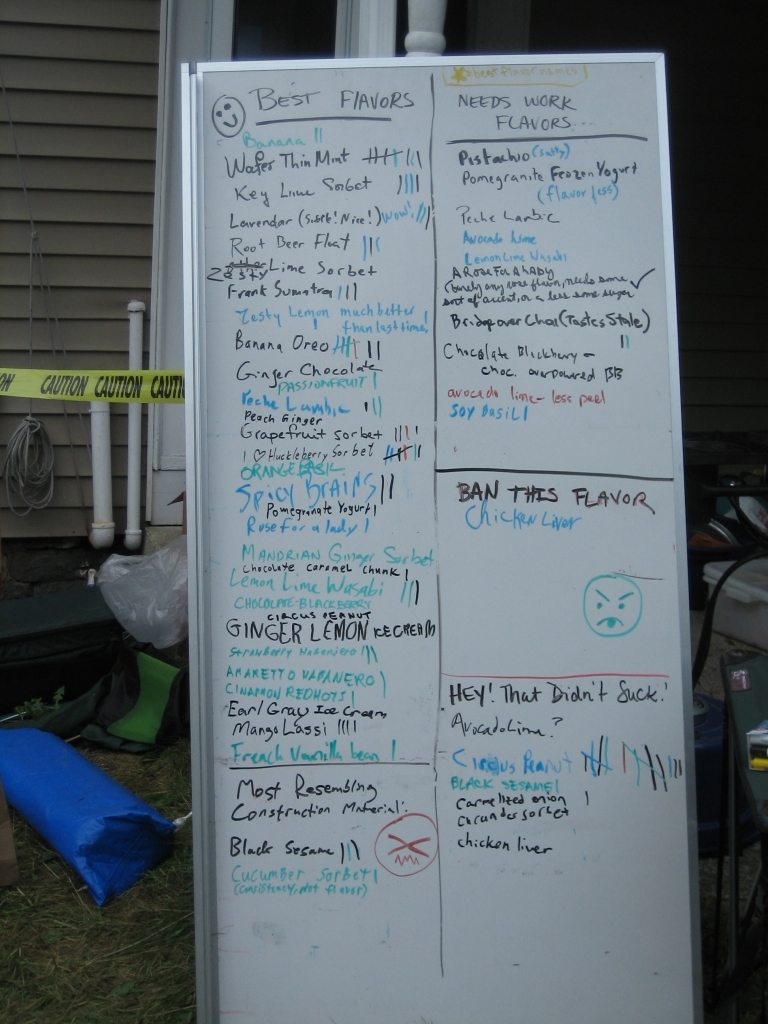 BEST FLAVORS
Banana
Wafer Thin Mint
Key Lime Sorbet
Lavendar (Subtle! Nice!) Wow!
Root Beer Float
Zesty Lime Sorbet
Frank Sumatra
Zesty Lemon much better
then last time!
Banana Oreo
Ginger Chocolate
PASSIONFRUIT
Peche Lambic
Peach Ginger
Grapefruit Sorbet
I ♡ Huckleberry Sorbet
ORANGE BASIL
SPICY BRAINS
Pomegranate Yogurt
Rose for a lady
MANDRIAN Ginger Sorbet
Chocolate Caramel Chunk
Lemon Lime Wasabi
CHOCOLATE-BLACKBERRY
CIRCUS PEANUT
GINGER LEMON ICE CREAM
Strawberry Habeniero
AMARETTO HABANERO
CINAMMON REDHOTS
Earl Gray Ice Cream
Mango Lassi
French Vanilla bean
Most Resembling
Construction Material:
Black Sesame
Cucumber Sorbet
(consistency, not flavor)
flavor names
NEEDS WORK
FLAVORS...
Pistachio (salty)
Pomegranite Frozen Yogurt
(flavorless)
Peche Lambic
Avocado Lime
Lemon Lime Wasabi
A Rose For A Lady
(barely any rose flavor, needs some
sort of accent, or a less some sugar
Bridge over Chai (Tastes Stale)
Chocolate Blackberry -
choc. overpowered BB
avocado lime - less peel
SOY BASIL
BAN THIS FLAVOR
Chicken Liver
HEY! That Didn't Suck!
Avocado Lime?
Circus Peanut
BLACK SESAME
carmelized onion
cucumber sorbet
chicken liver
ON CAUTION CAUTION CAUTI